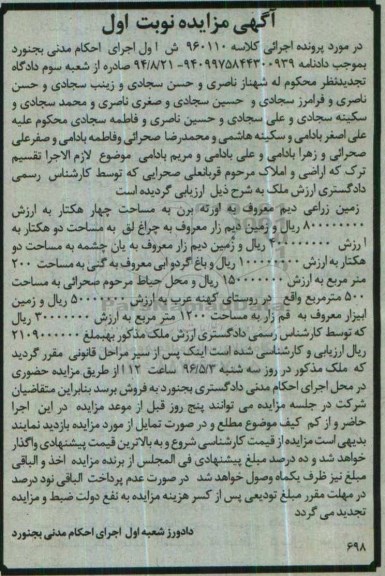 آگهی مزایده نوبت اول
در مورد پرونده اجرائی کلاسه ۹۶۰۱۱۰ ش ا ول اجرای احکام مدنی بجنورد
بموجب دادنامه ۹۴۰۹۹۷۵۸۴۴۳۰۰۹۳۹- ۹۴/۸/۲۱ صادره از شعبه سوم دادگاه
تجدیدنظر محکوم له شهناز ناصری و حسن سجادی و زینب سجادی و حسن
ناصری و فرامرز سجادی و حسین سجادی و صغری ناصری و محمد سجادی و
سکینه سجادی و علی سجادی و حسین ناصری و فاطمه سجادی محکوم علیه
علی اصغر بادامی و سکینه هاشمی و محمدرضا صحرائی وفاطمه بادامی و صفرعلی
صحرائی و زهرا بادامی و علی بادامی و مریم بادامی موضوع لازم الاجرا تقسیم
ترک که اراضی و املاک مرحوم قربانعلی صحرایی که توسط کارشناس رسمی
دادگستری ارزش ملک به شرح ذیل ارزیابی گردیده است
زمین زراعی دیم معروف به اوزته برن به مساحت چهار هکتار به ارزش
۸۰۰۰۰۰۰۰۰ ریال و زمین دیم زار معروف به چراغ لق به مساحت دو هکتار به
ا رزش ۴۰۰۰۰۰۰۰۰ ریال و زمین دیم زار معروف به یان چشمه به مساحت دو
هکتار به ارزش ۱۰۰۰۰۰۰۰۰ ریال و باغ گردو ابی معروف به گنی به مساحت ۲۰۰
متر مربع به ارزش ۱۵۰۰۰۰۰۰۰ ریال و محل حیاط مرحوم صحرائی به مساحت
۵۰۰ مترمربع واقع در روستای کهنه عرب به ارزش ۵۰۰۰۰۰۰۰ ریال و زمین
ابیزار معروف به قم زار به مساحت ۱۲۰۰ متر مربع به ارزش ۳۰۰۰۰۰۰۰ ریال
که توسط کارشناس رسمی دادگستری ارزش ملک مذکور بهمبلغ ۲۱۰۹۰۰۰۰۰۰
ریال ارزیابی و کارشناسی شده است اینک پس از سیر مراحل قانونی مقرر گردید
که ملک مذکور در روز سه شنبه ۹۶/۵/۳ ساعت ۱۱۲ از طریق مزایده حضوری
در محل اجرای احکام مدنی دادگستری بجنورد به فروش برسد بنابراین متقاضیان
شرکت در جلسه مزایده می توانند پنج روز قبل از موعد مزایده در این اجرا
حاضر و از کم کیف موضوع مطلع و در صورت تمایل از مورد مزایده بازدید نمایند
بدیهی است مزایده از قیمت کارشناسی شروع و به بالاترین قیمت پیشنهادی واگذار
خواهد شد و ده درصد مبلغ پیشنهادی فی المجلس از برنده مزایده اخذ و الباقی
مبلغ نیز ظرف یکماه وصول خواهد شد در صورت عدم پرداخت الباقی نود درصد
در مهلت مقرر مبلغ تودیعی پس از کسر هزینه مزایده به نفع دولت ضبط و مزایده
تجدید می گردد
دادورز شعبه اول اجرای احکام مدنی بجنورد
۶۹۸